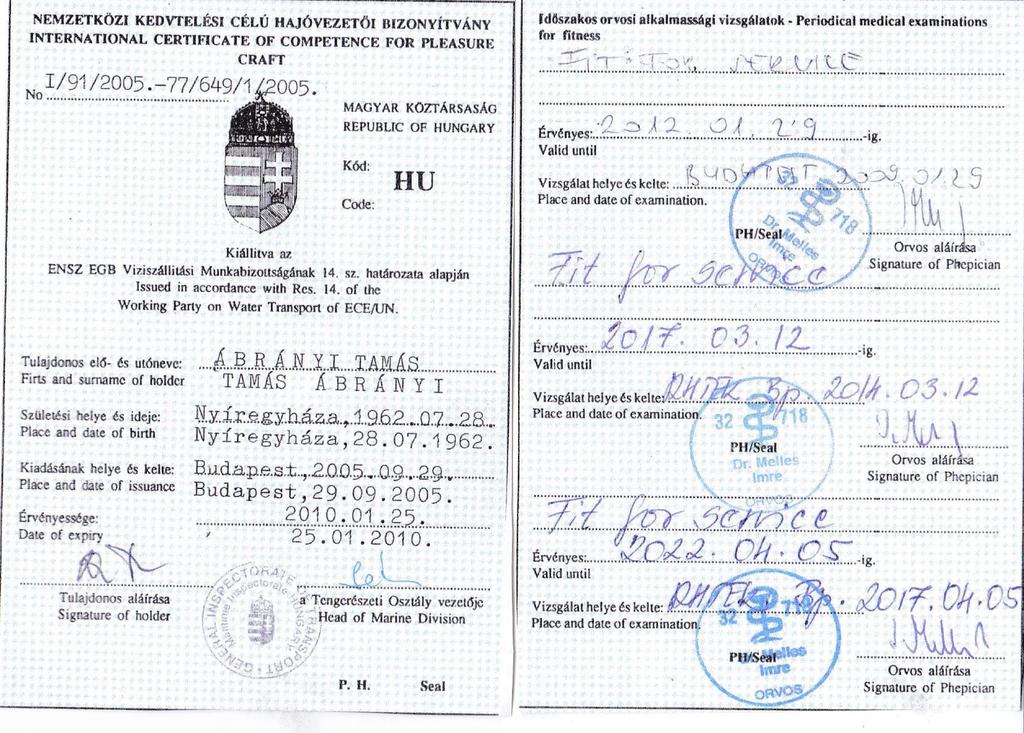 NEMZETKÖZI KEDVTELÉSI CÉLÚ HAJÓVEZETŐI BIZONYÍTVÁNY
INTERNATIONAL CERTIFICATE OF COMPETENCE FOR PLEASURE
CRAFT
No I/91/2005.-77/649/1/2005.
MAGYAR KÖZTÁRSASÁG
REPUBLIC OF HUNGARY
Kód:
HU
Code:
Kiállitva az
ENSZ EGB Viziszállitási Munkabizottságának 14. sz. határozata alapján
Issued in accordance with Res. 14. of the
Working Party on Water Transport of ECE/UN.
Tulajdonos elő- és utóneve: ÁBRÁNYI TAMÁS
Firts and surname of holder TAMÁS ÁBRÁNYI
Születési helye és ideje: Nyíregyháza,1962.07.28.
Place and date of birth Nyíregyháza,28.07.1962.
Kiadásának helye és kelte: Budapest,2005.09.29.
Place and date of issuance Budapest,29.09.2005.
Érvényessége: 2010.01.25.
Date of expiry 25.01.2010.
Tulajdonos aláírása
Signature of holder
a Tengerészeti Osztály vezetője
Head of Marine Division
GENERAL INSPECTORATE TRANSPORT
Maritime Inspectorate HUNGARY
P. H. Seal
Időszakos orvosi alkalmassági vizsgálatok - Periodical medical examinations
for fitness
FIT FOR SERVICE
Érvényes: 2012. 01. 29 -ig.
Valid until
Vizsgálat helye és kelte: BUDAPEST 2009.01.29
Place and date of examination.
32 718
Dr. Melles
Imre
ORVOS
PH/Seal
Orvos aláírása
Signature of Phepician
Fit for service
Érvényes: 2017. 03. 12 -ig.
Valid until
Vizsgálat helye és kelte: Bp. 2014. 03. 12
Place and date of examination.
32 718
PH/Seal
Dr. Melles
Imre
ORVOS
Orvos aláírása
Signature of Phepician
Fit for service
Érvényes: 2022. 04. 05 -ig.
Valid until
Vizsgálat helye és kelte: Bp. 2017. 04. 05
Place and date of examination.
32 718
PH/Seal
Dr. Melles
Imre
ORVOS
Orvos aláírása
Signature of Phepician